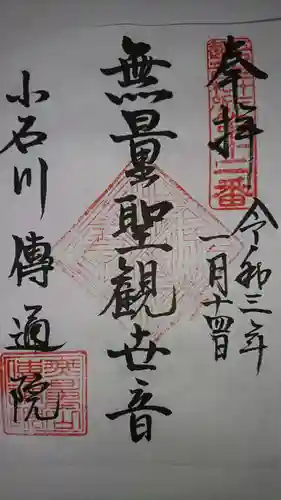 奉拝
令和三年
一月十四日
無量聖観世音
小石川傳通院